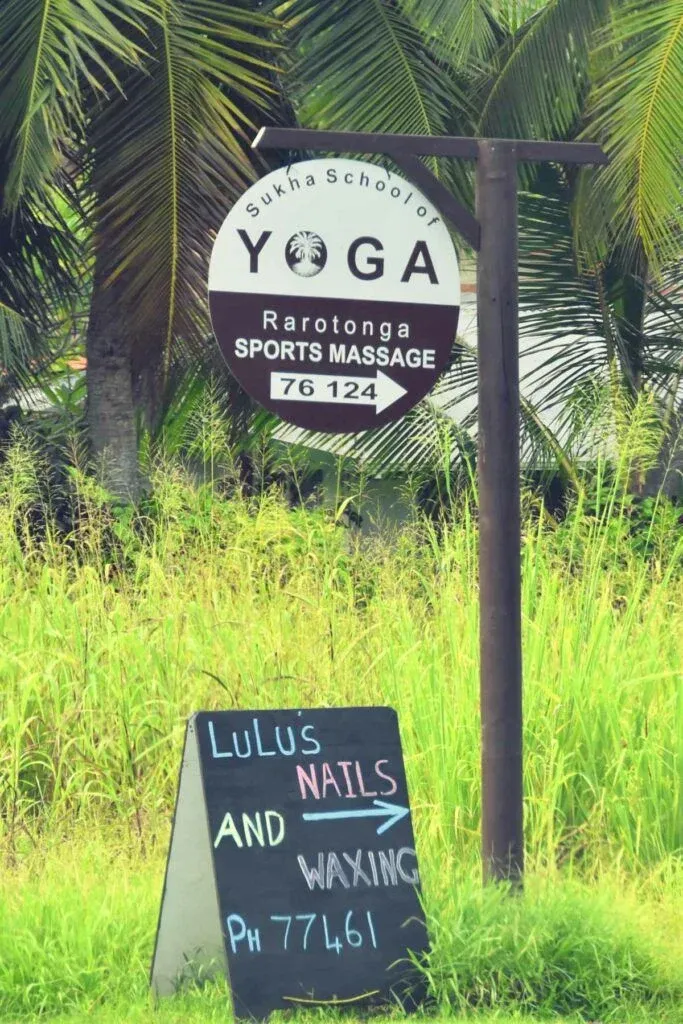 Sukha School of
YOGA
Rarotonga
SPORTS MASSAGE
76 124
LULU'S
NAILS
AND
WAXING
PH 77461